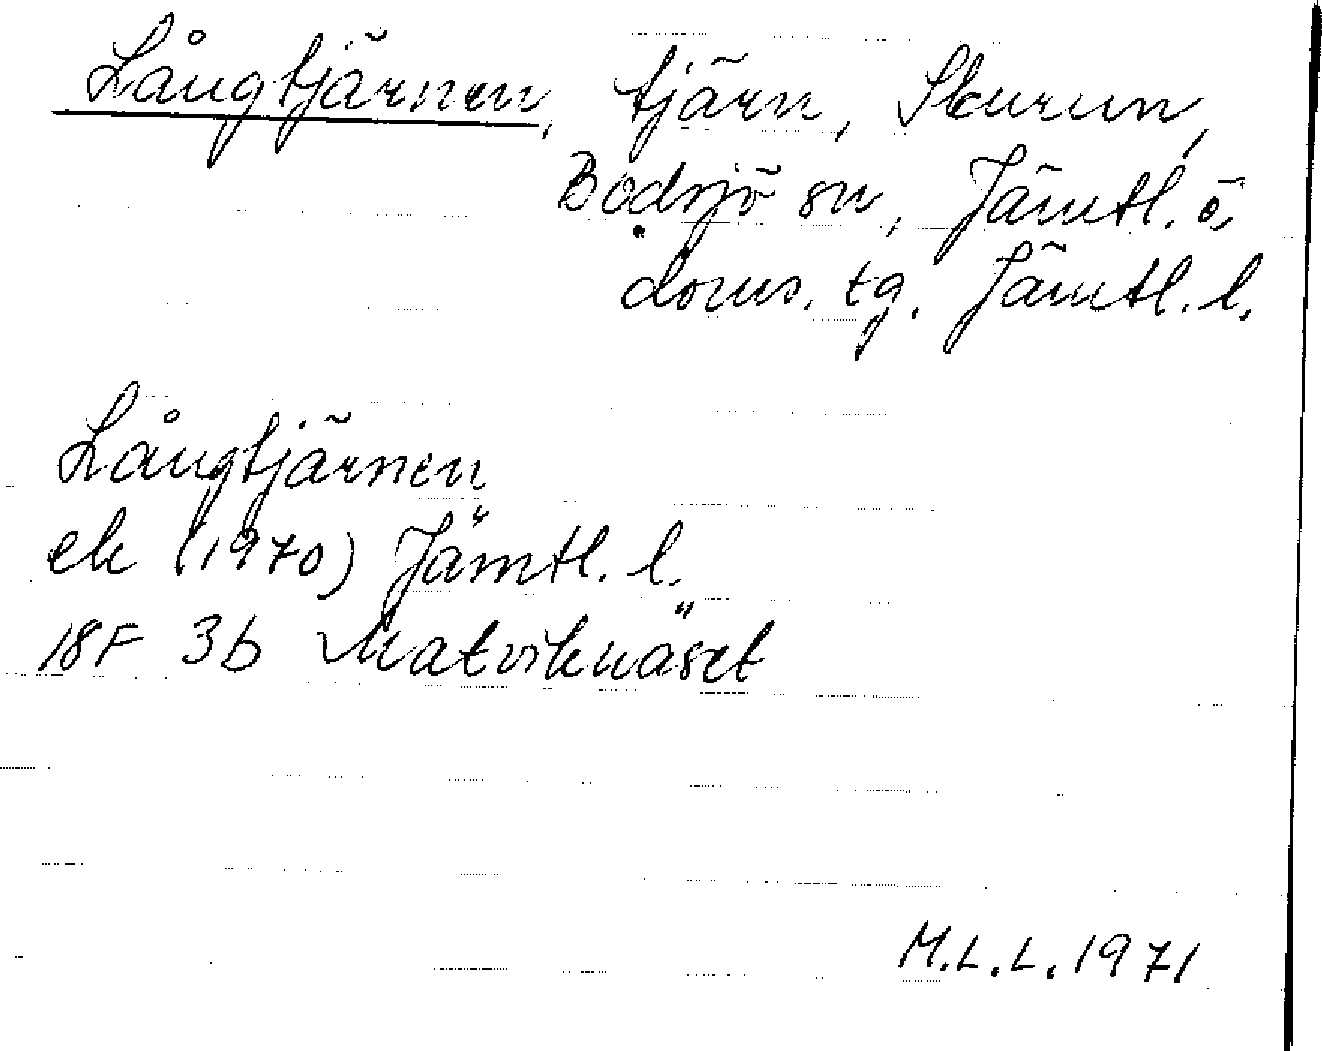 Långtjärnen, tjärn, Skurun,
Bodsjö sn, Jämtl. ö.
doms. tg. Jämtl. l.
Långtjärnen
ek (1970) Jämtl. l.
18F 3b Matviknäset
M.L.L. 1971